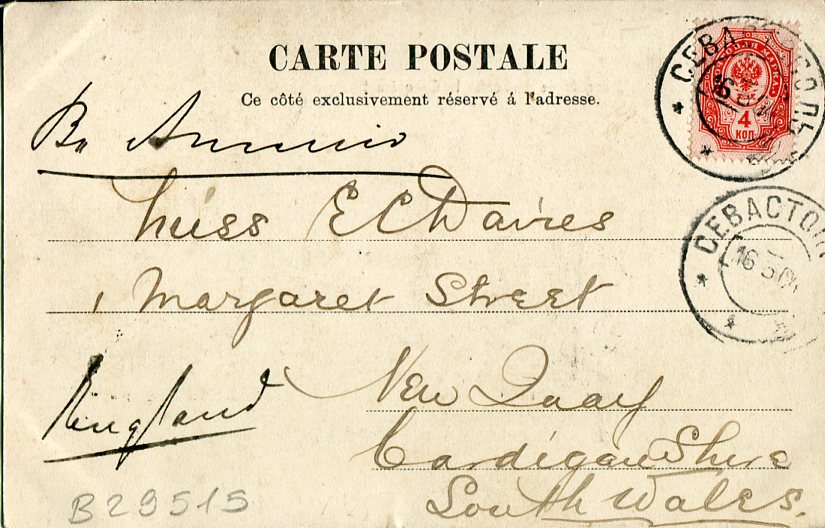 CARTE POSTALE
Ce côté exclusivement réservé á l'adresse.
Въ Англiю
Miss E C Davies
1 Margaret Street
New Quay
England
Cardiganshire
South Wales.
B29515
СЕВАСТОПОЛЬ
4
КОП
СЕВАСТОП
16 3